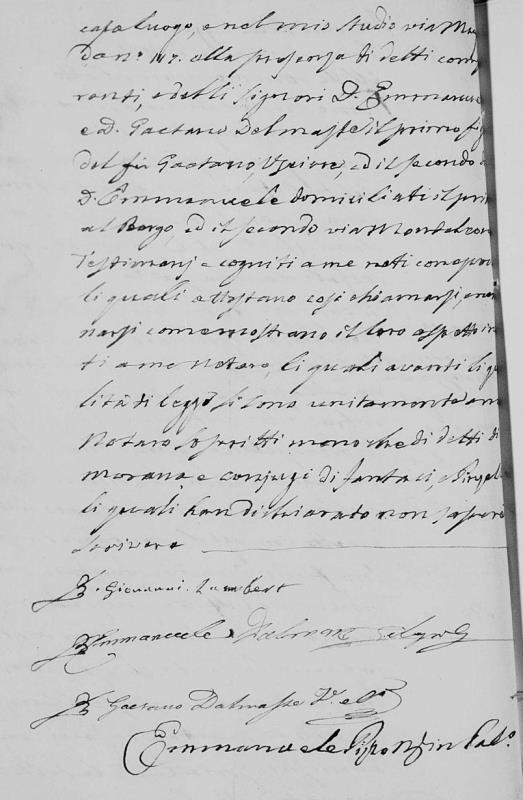 casa luogo, e nel mio studio via Ma
da nº 117. alla presenza di detti comp
renti, e delli Signori D. Emmanuele
e D. Gaetano Delmasse il primo fig
del fu Gaetano, Usciere, ed il secondo
D. Emmanuele domiciliati il pri
al Borgo, ed il secondo via Montalcon
Testimonj e cogniti a me noti
li quali attestano così chiamarsi, e no
narsi come mostrano il loro aspetto in
ti a me Notaro, li quali avanti li qu
lità di legge si sono unitamente a me
Notaro soscritti meno che di detti di
Morana e conjugi di Fantaci, e
li quali han dichiarato non sapere
scrivere
Giovanni Lumbert
Emmanuele Dalmasse
Gaetano Dalmasse
Emmanuele in Pal.º